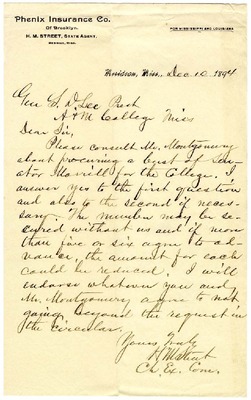 Phenix Insurance Co.
Of Brooklyn.
H. M. STREET, STATE AGENT,
MERIDIAN, MISS.
FOR MISSISSIPPI AND LOUISIANA
Meridian, Miss, Dec 10 1894
Gen S. D. Lee Prest
A & M College Miss
Dear Sir,
Please consult Mr. Montgomery
about procuring a bust of Sen-
ator Morrill for the College. I
answer yes to the first question
and also to the second if neces-
sary. The number may be se-
cured without us and if more
than five or six agree to ad-
vance, the amount for each
could be reduced. I will
endorse whatever you and
Mr. Montgomery agree to not
going beyond the request in
the circular.
Yours Truly
H M Street
Ch. Ex. Com.